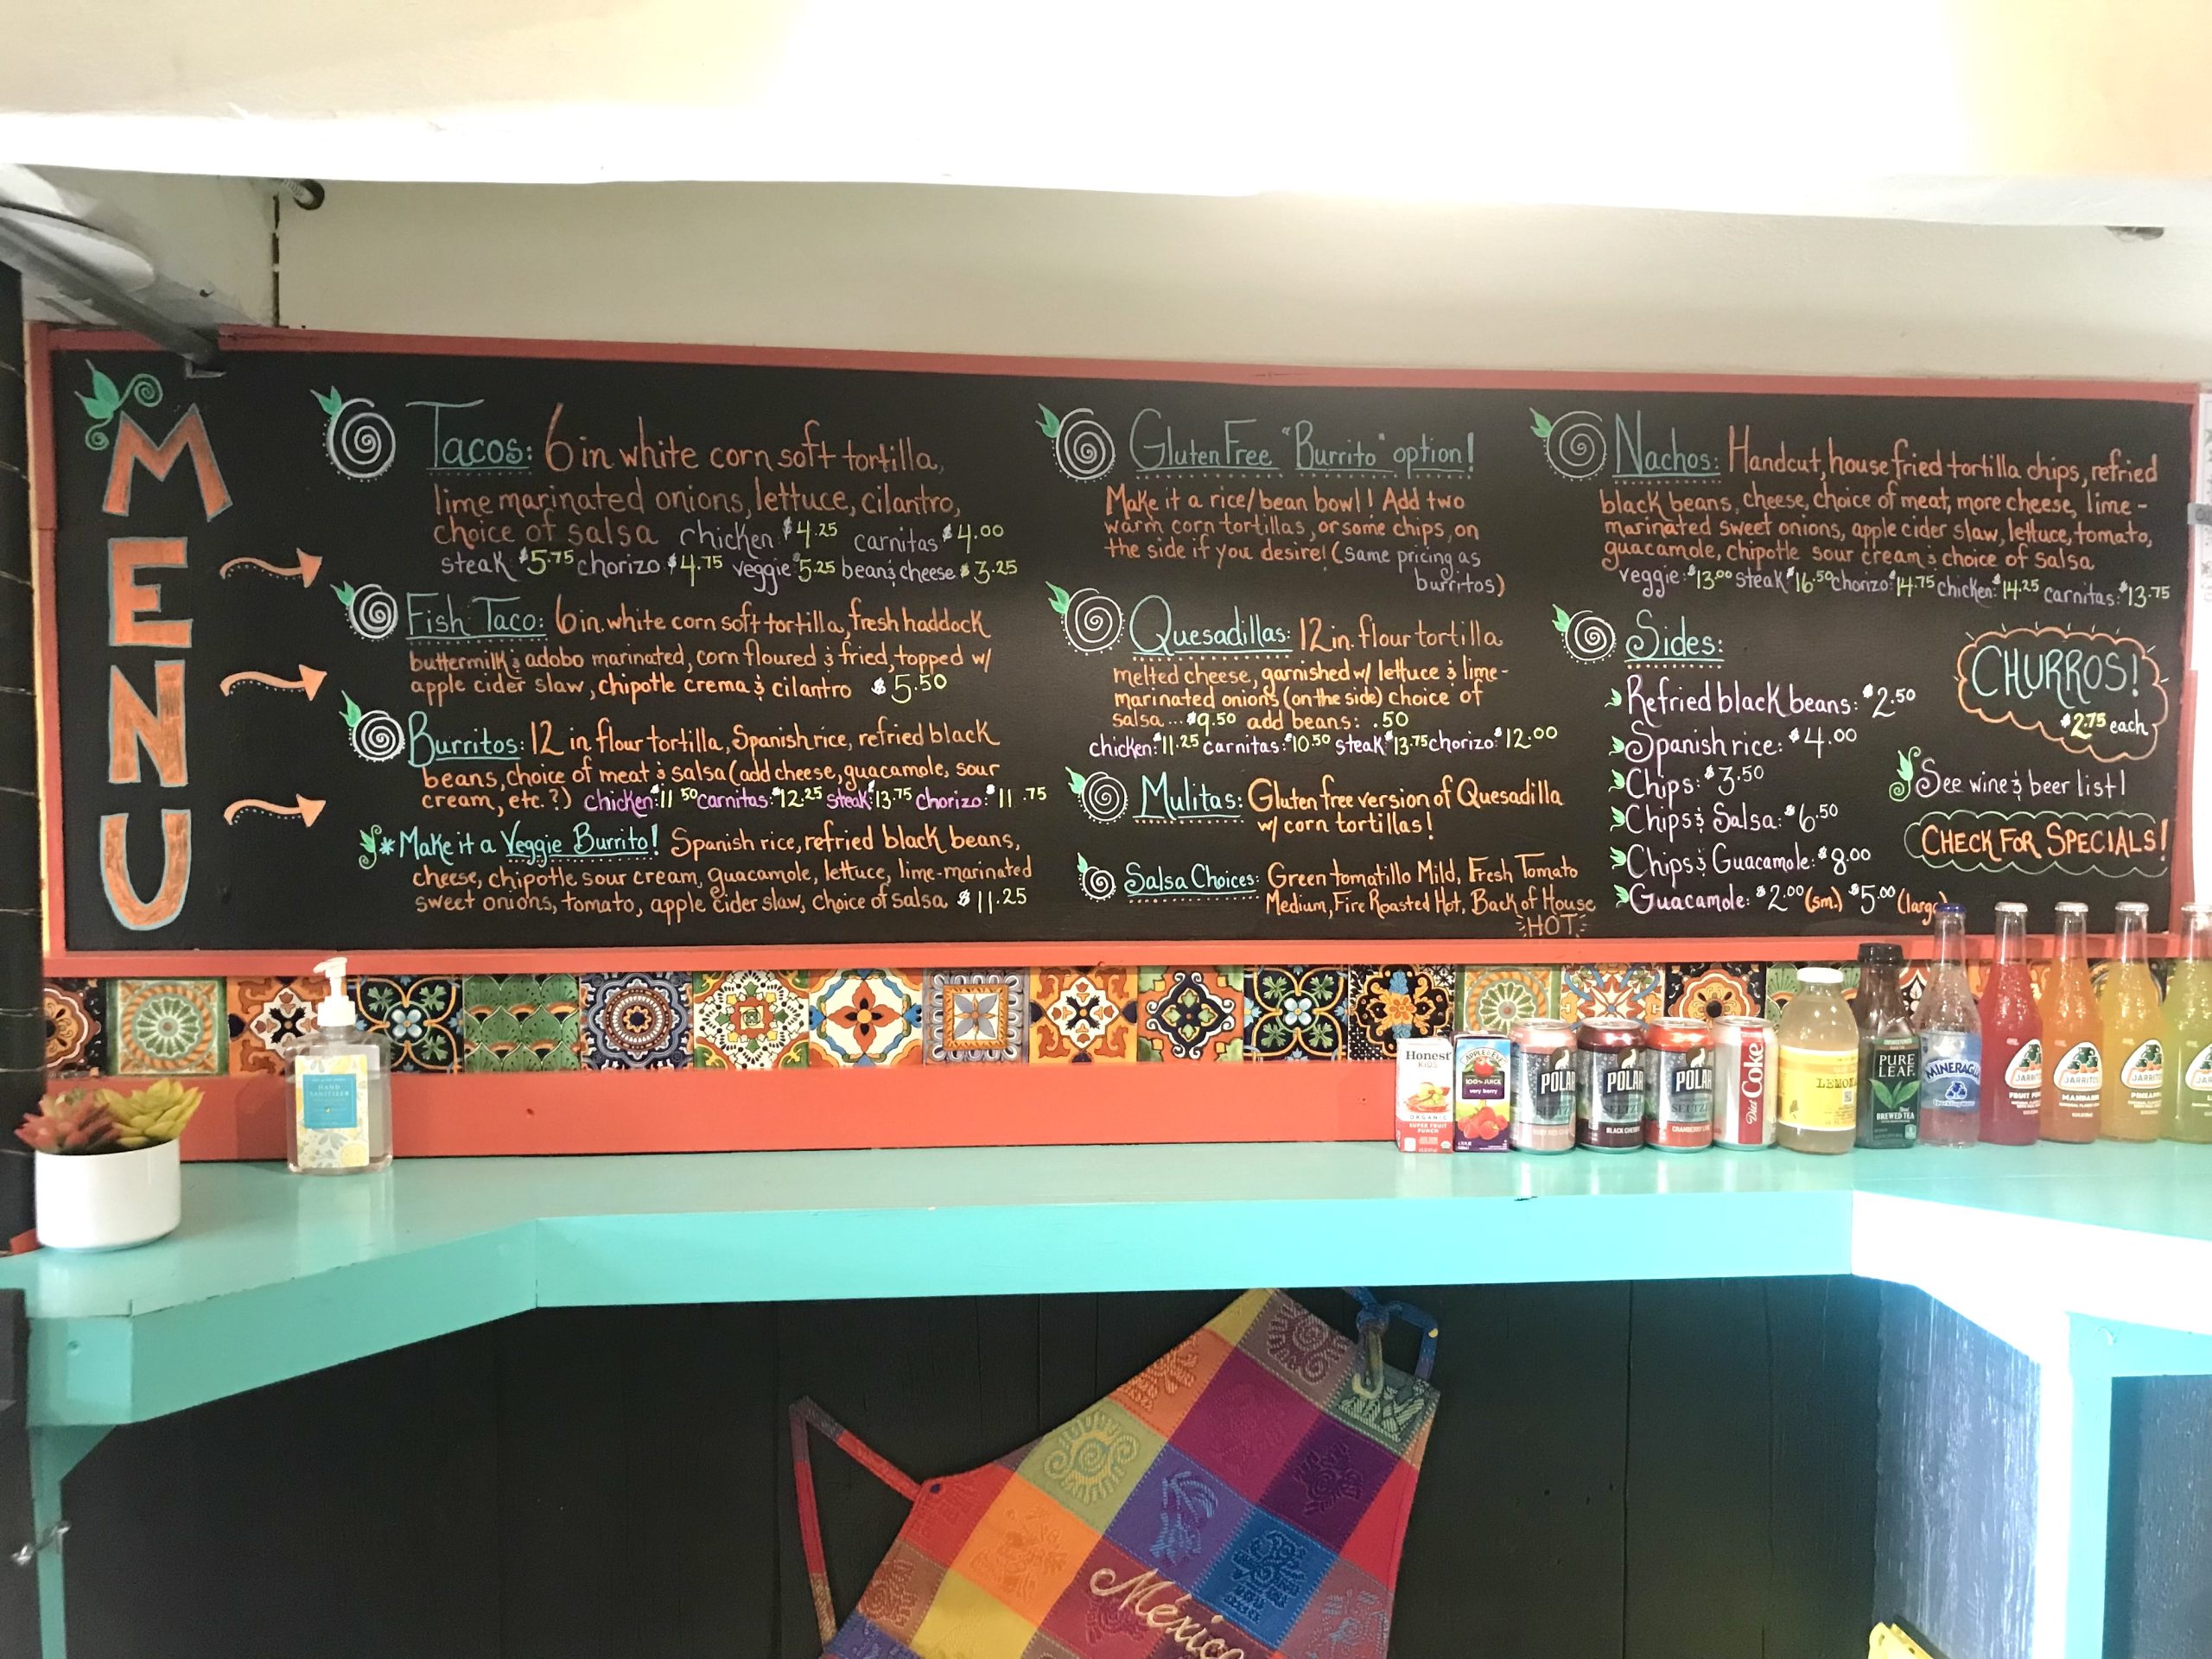 MENU
Tacos: 6 in white corn soft tortilla,
lime marinated onions, lettuce, cilantro,
choice of salsa chicken $4.25 carnitas $4.00
steak $5.75 chorizo $4.75 veggie $5.25 bean & cheese $3.25
Fish Taco: 6 in. white corn soft tortilla, fresh haddock
buttermilk & adobo marinated, corn floured & fried, topped w/
apple cider slaw, chipotle crema & cilantro $5.50
Burritos: 12 in flour tortilla, Spanish rice, refried black
beans, choice of meat & salsa (add cheese, guacamole, sour
cream, etc.?) chicken: $11.50 carnitas: $12.25 steak: $13.75 chorizo: $11.75
*Make it a Veggie Burrito! Spanish rice, refried black beans,
cheese, chipotle sour cream, guacamole, lettuce, lime-marinated
sweet onions, tomato, apple cider slaw, choice of salsa $11.25
Gluten Free "Burrito" option!
Make it a rice/bean bowl! Add two
warm corn tortillas, or some chips, on
the side if you desire! (same pricing as
burritos)
Quesadillas: 12 in. flour tortilla
melted cheese, garnished w/ lettuce & lime-
marinated onions (on the side) choice of
salsa... $9.50 add beans: .50
chicken: $11.25 carnitas: $10.50 steak: $13.75 chorizo: $12.00
Mulitas: Gluten free version of Quesadilla
w/ corn tortillas!
Salsa Choices: Green tomatillo Mild, Fresh Tomato
Medium, Fire Roasted Hot, Back of House
HOT
Nachos: Handcut, house fried tortilla chips, refried
black beans, cheese, choice of meat, more cheese, lime-
marinated sweet onions, apple cider slaw, lettuce, tomato,
guacamole, chipotle sour cream & choice of salsa
veggie: $13.00 steak: $16.50 chorizo: $14.75 chicken: $14.25 carnitas: $13.75
Sides:
Refried black beans: $2.50
Spanish rice: $4.00
Chips: $3.50
Chips & Salsa: $6.50
Chips & Guacamole: $8.00
Guacamole: $2.00 (sm.) $5.00 (large)
CHURROS!
$2.75 each
See wine & beer list!
CHECK FOR SPECIALS!
HAND
SANITIZER
Honest
KIDS
ORGANIC
SUPER FRUIT
PUNCH
APPLE & EVE
100% JUICE
very berry
POLAR
SELTZER
POLAR
SELTZER
BLACK CHERRY
POLAR
SELTZER
CRANBERRY LIME
Diet Coke
LEMON
PURE
LEAF
BREWED TEA
MINERAG
JARRITOS
FRUIT PUN
JARRITOS
MANDARIN
JARRITOS
PINEAPPLE
México